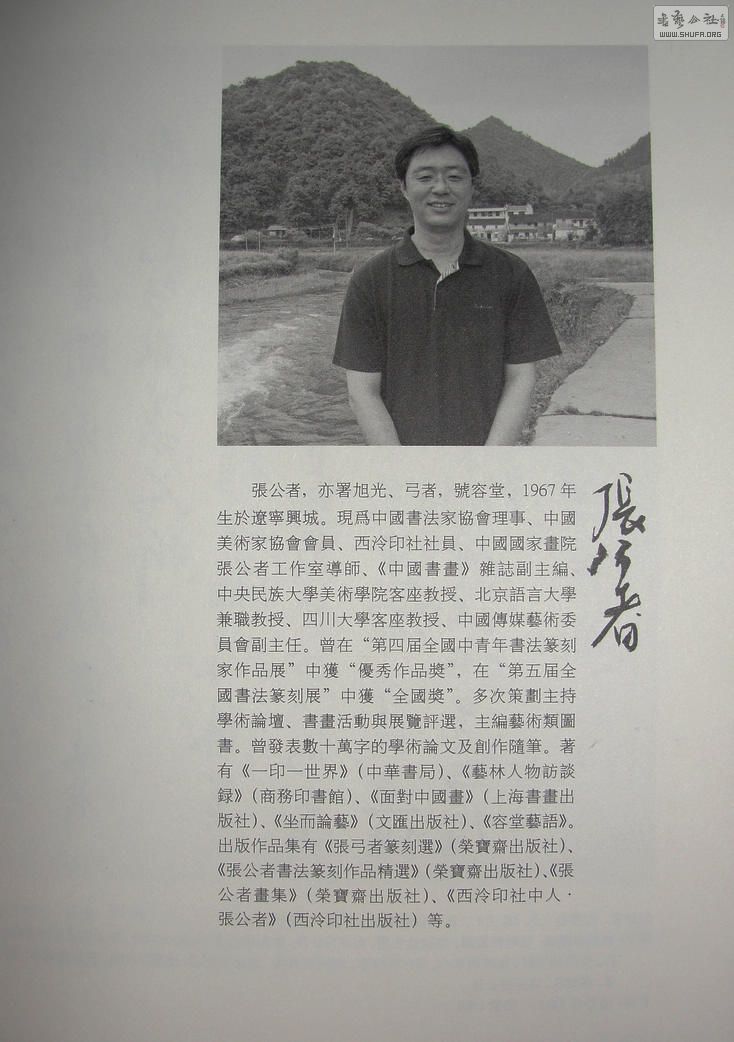 書藝公社
WWW.SHUFA.ORG
張公者，亦署旭光、弓者，號容堂，1967年
生於遼寧興城。現爲中國書法家協會理事、中國
美術家協會會員、西泠印社社員、中國國家畫院
張公者工作室導師、《中國書畫》雜誌副主編、
中央民族大學美術學院客座教授、北京語言大學
兼職教授、四川大學客座教授、中國傳媒藝術委
員會副主任。曾在“第四届全國中青年書法篆刻
家作品展”中獲“優秀作品獎”，在“第五届全
國書法篆刻展”中獲“全國獎”。多次策劃主持
學術論壇、書畫活動與展覽評選，主編藝術類圖
書。曾發表數十萬字的學術論文及創作隨筆。著
有《一印一世界》（中華書局）、《藝林人物訪談
録》（商務印書館）、《面對中國畫》（上海書畫出
版社）、《坐而論藝》（文匯出版社）、《容堂藝語》。
出版作品集有《張弓者篆刻選》（榮寶齋出版社）、
《張公者書法篆刻作品精選》（榮寶齋出版社）、《張
公者畫集》（榮寶齋出版社）、《西泠印社中人·
張公者》（西泠印社出版社）等。
張公者